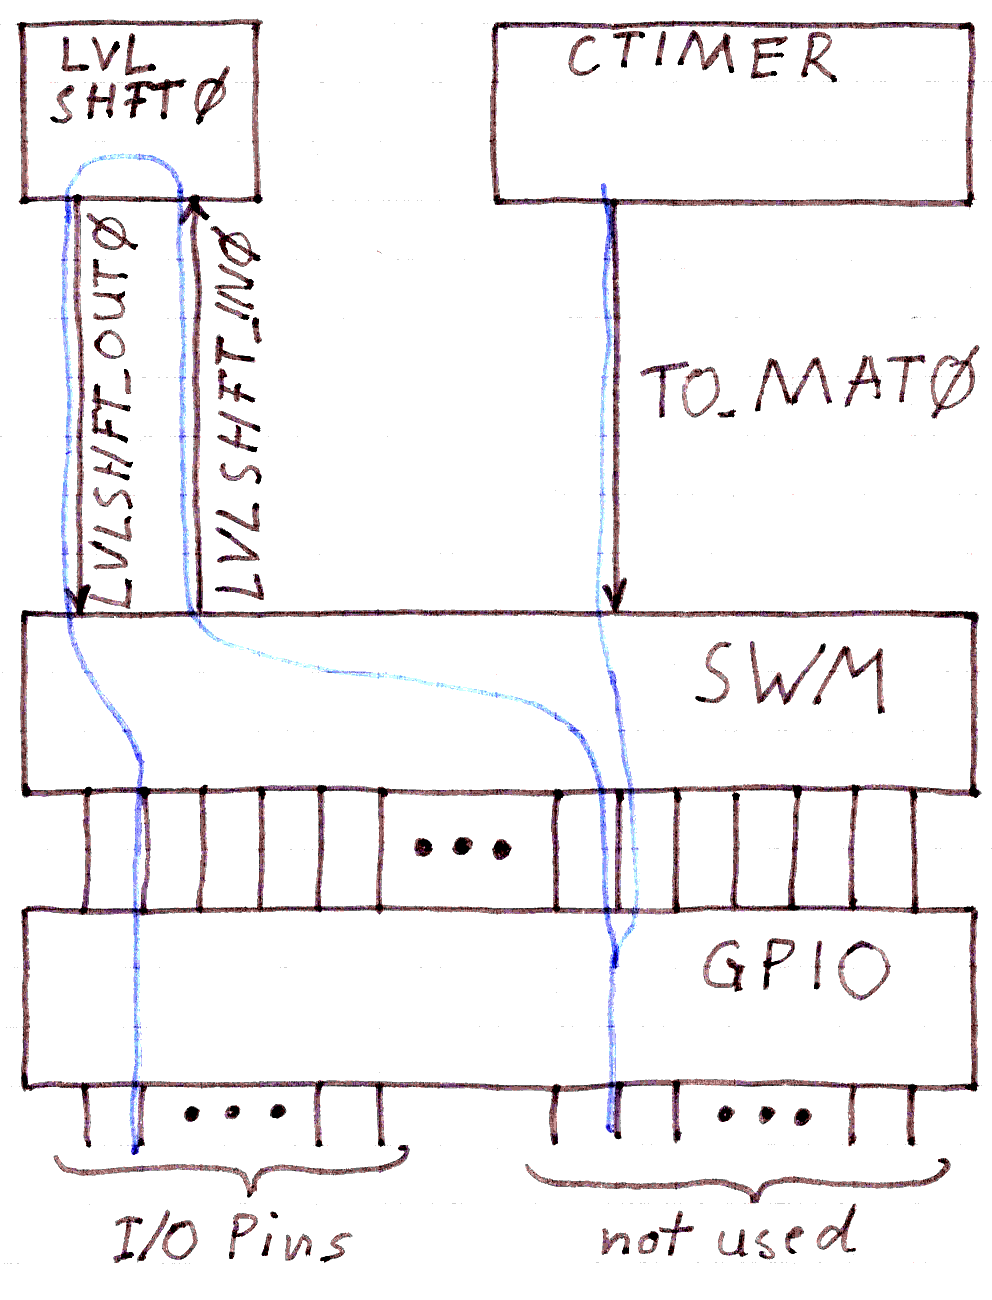 LVL
SHFTØ
CTIMER
LVLSHFT_OUTØ
LVLSHFT_INØ
TO_MATØ
SWM
GPIO
I/O Pins
not used